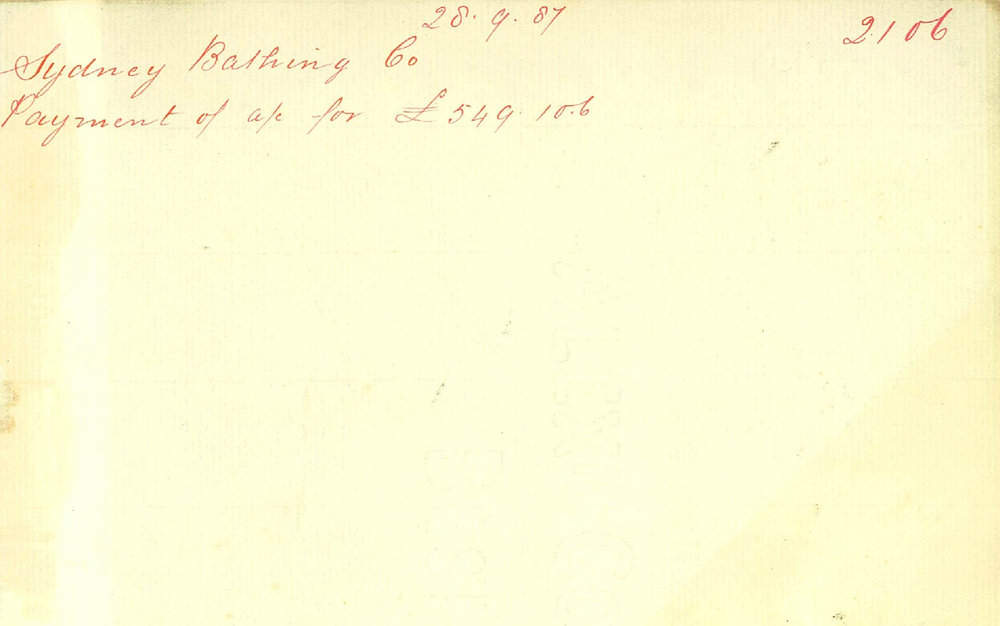 28.9.87
2106
Sydney Bathing Co
Payment of a/c for £549.10.6